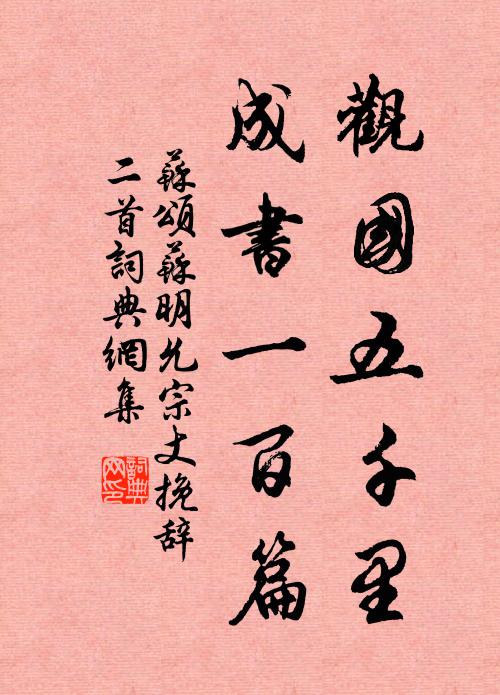 觀國五千里
成書一百篇
蘇頌蘇明允宗丈挽辞
二首詞典網集
詞典
网印